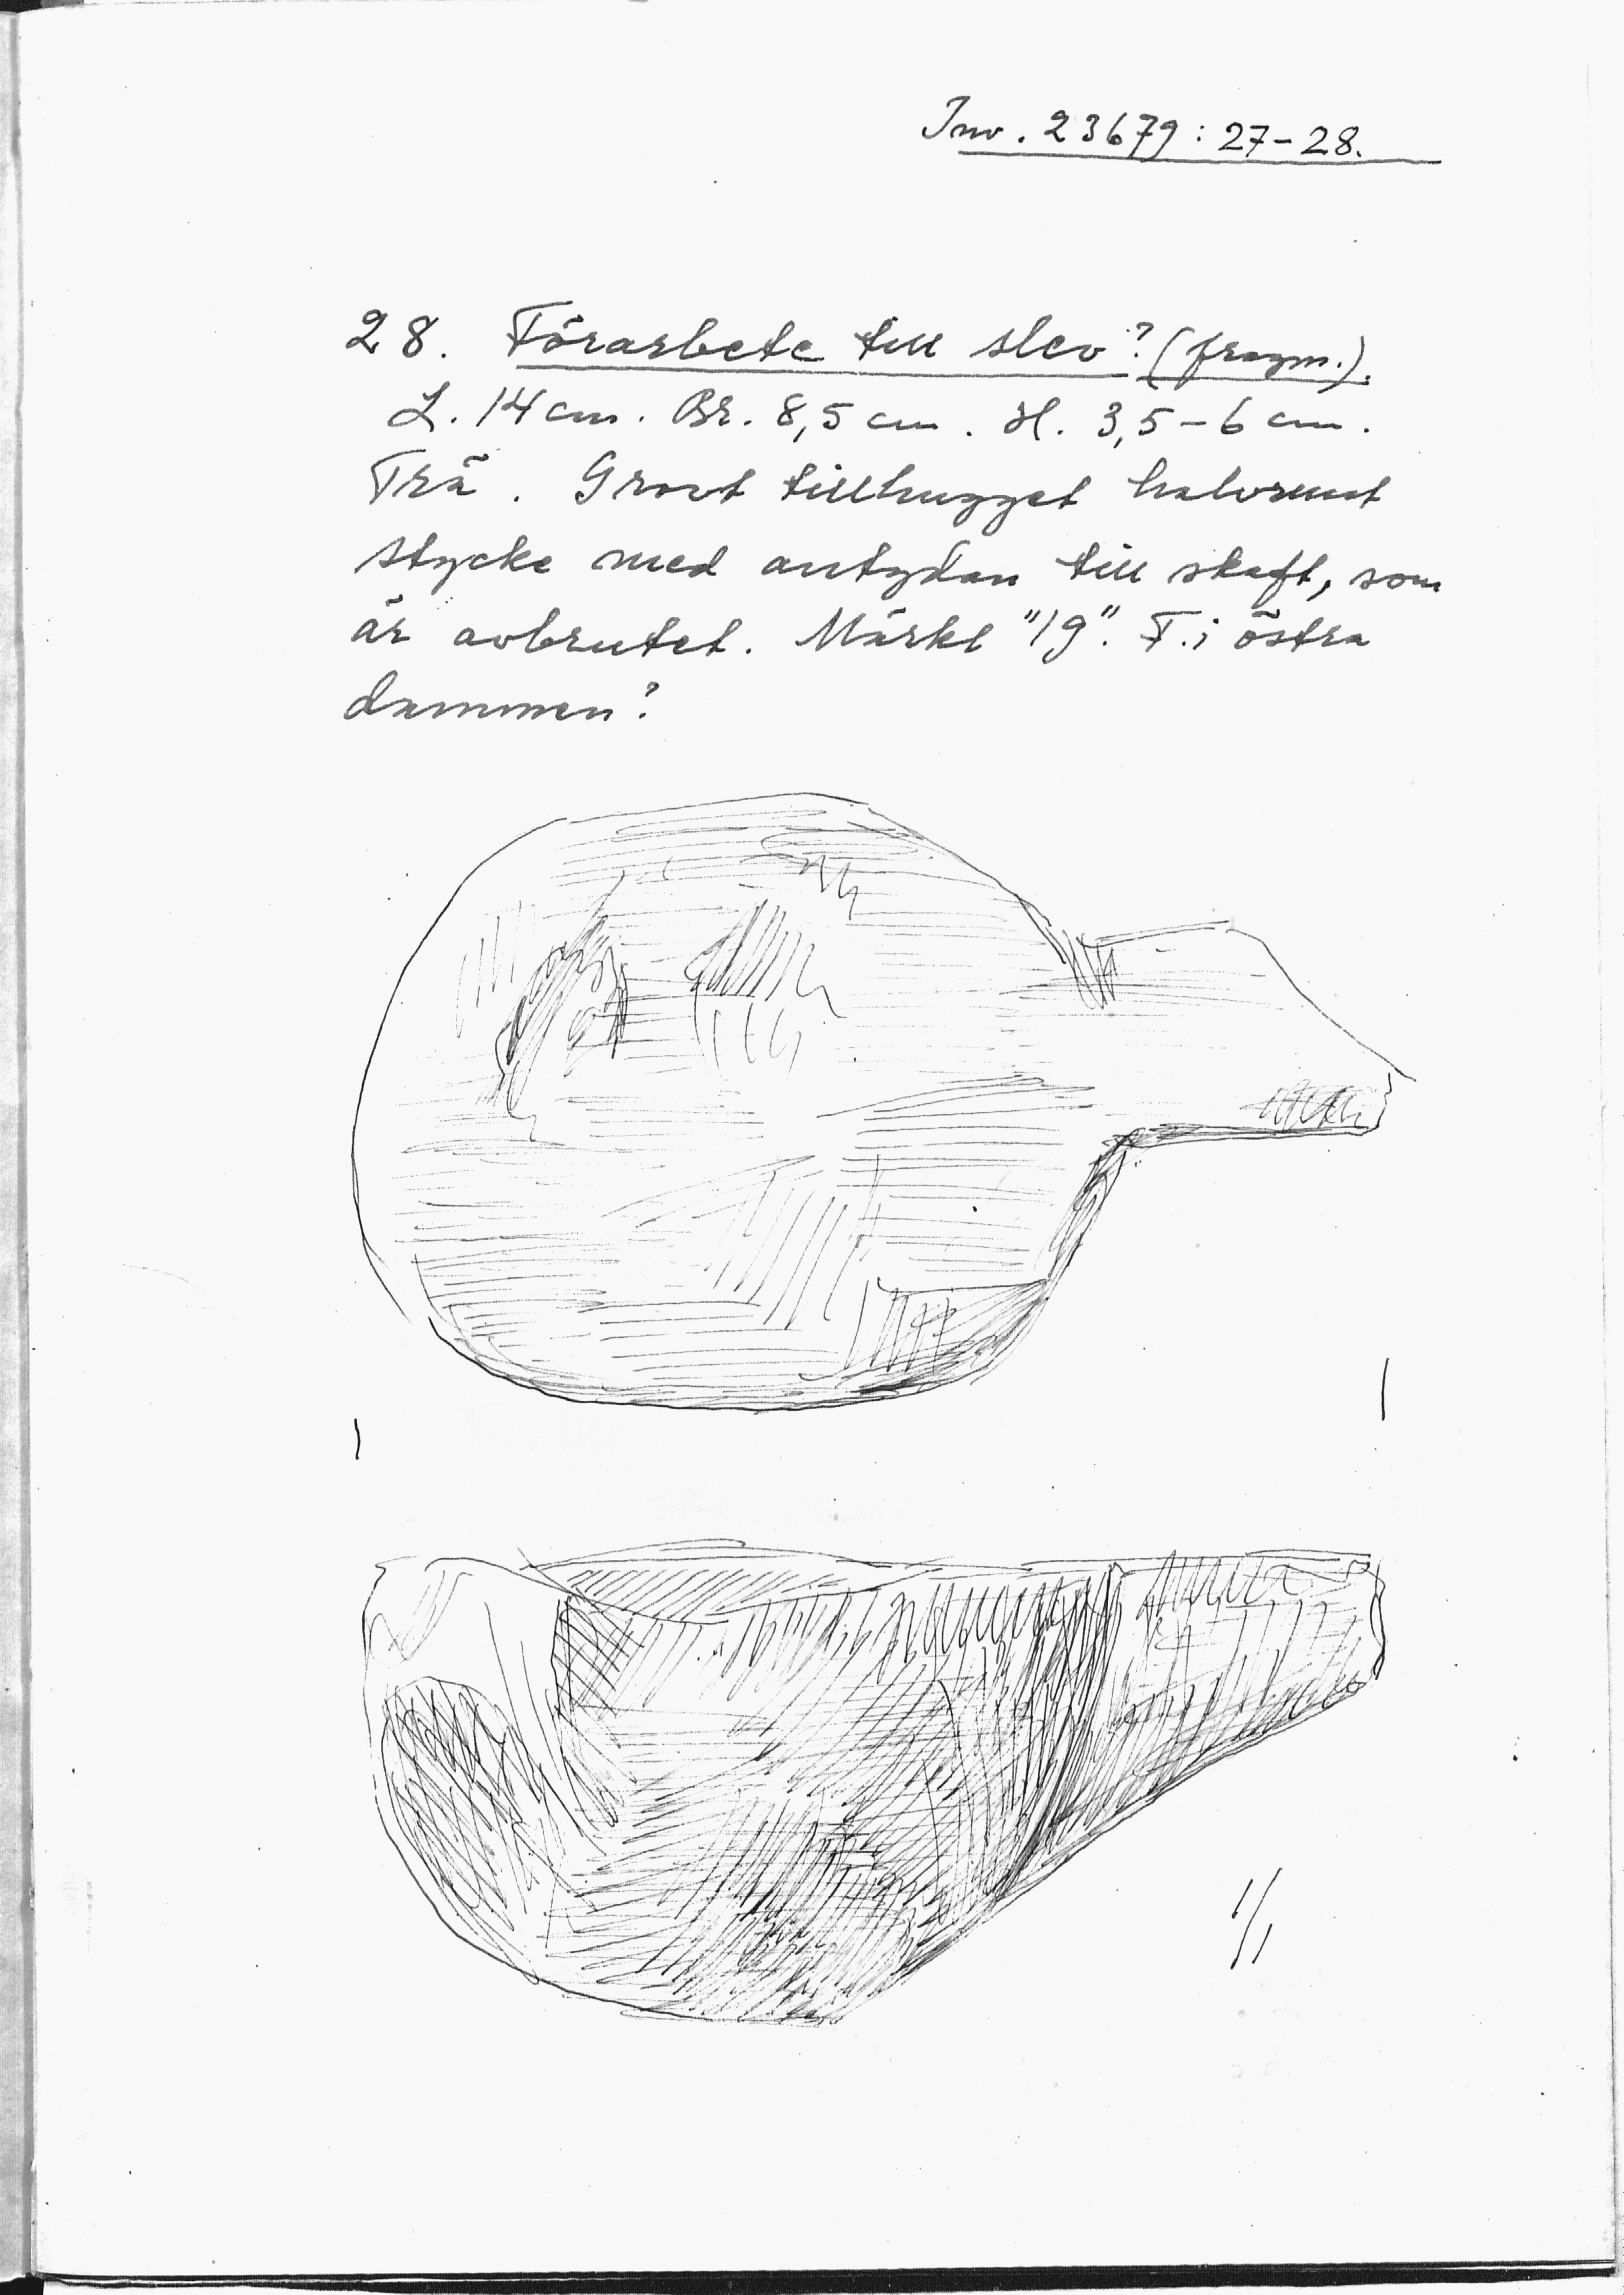 Inv. 23679:27-28.
28. Förarbete till slev? (fragm.).
L. 14 cm. Br. 8,5 cm. H. 3,5-6 cm.
Trä. Grovt tillhugget halvrunt
stycke med antydan till skaft, som
är avbrutet. Märkt "19". F. i östra
dammen?
1/1